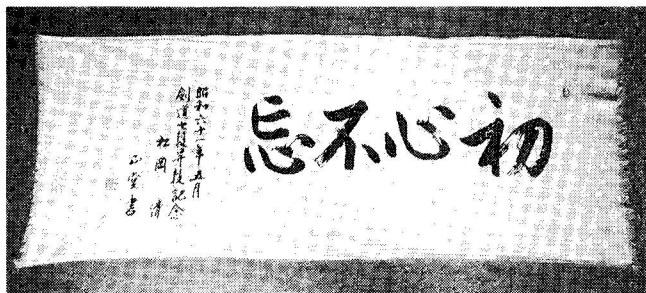 初心不忘
昭和六十一年五月
剣道七段昇段記念
松岡 清